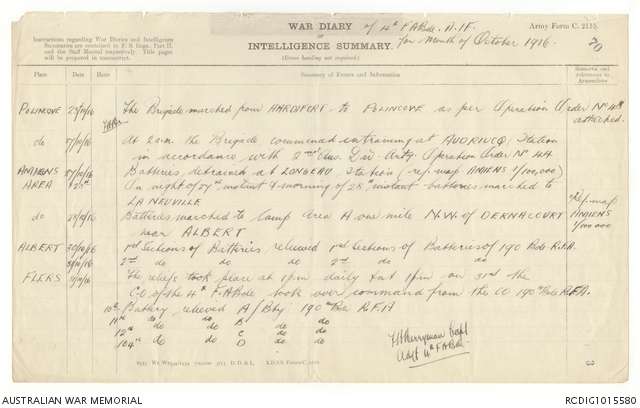 WAR DIARY of 4th F.A.Bde. A.I.F.
or
INTELLIGENCE SUMMARY. for Month of October 1916
(Erase heading not required.)
Army Form C. 2118.
70
Instructions regarding War Diaries and Intelligence
Summaries are contained in F. S. Regs., Part II.
and the Staff Manual respectively. Title pages
will be prepared in manuscript.
Place Date Hour Summary of Events and Information Remarks and references to Appendices
POLINCOVE The Brigade marched from HARDIFORT to POLINCOVE as per Operation Order No 48
attached.
do At 2 a.m. the Brigade commenced entraining at AUDRUICQ Station
in accordance with 2nd Aus. Div. Arty. Operation Order No 44
AMIENS Batteries detrained at LONGEAU Station (ref. map AMIENS 1/100,000)
AREA On night of 27th instant & morning of 28th instant batteries marched to
LA NEUVILLE
do Batteries marched to Camp Area A one mile N.W. of DERNACOURT
near ALBERT
Ref. map
AMIENS
1/100000
ALBERT 30/10/16 1st Sections of Batteries relieved 1st Sections of Batteries of 190 Bde R.F.A.
31/10/16 2nd do do do 2nd do do do
FLERS The reliefs took place at 1 pm daily & at 1 pm on 31st the
CO of the 4th F.A.Bde took over command from the CO 190th Bde R.F.A.
10th Battery relieved A/Bty 190th Bde R.F.A
11th do do B do do
12th do do C do do
104th do do D do do
FHBerryman Capt
Adjt 4th FABde
AUSTRALIAN WAR MEMORIAL
RCDIG1015580